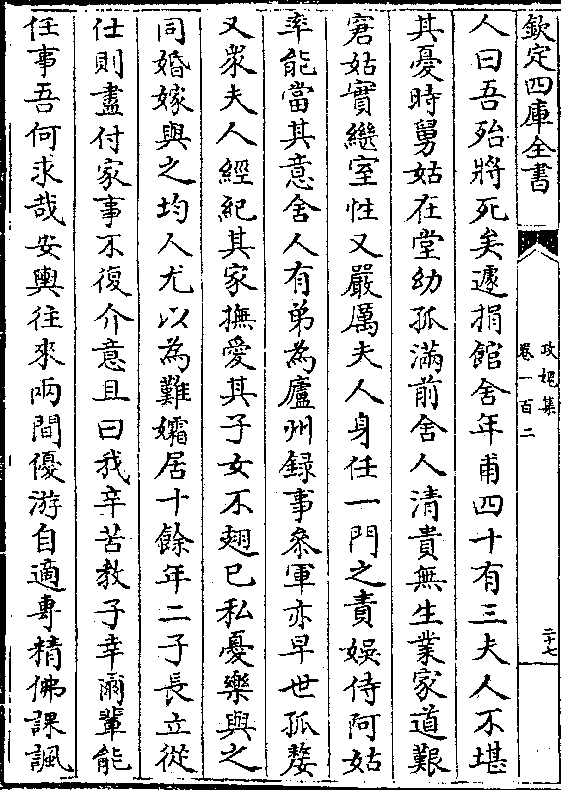 欽定四庫全書
攻媿集
卷一百二
二十七
人曰吾殆將死矣遽捐館舍年甫四十有三夫人不堪
其憂時舅姑在堂幼孤滿前舍人清貴無生業家道艱
窘姑實繼室性又嚴厲夫人身任一門之責娛侍阿姑
率能當其意舍人有弟為廬州録事叅軍亦早世孤嫠
又衆夫人經紀其家撫愛其子女不翅己私憂樂與之
同婚嫁與之均人尤以為難孀居十餘年二子長立從
仕則盡付家事不復介意且曰我辛苦教子幸爾輩能
任事吾何求哉安輿往來兩間優游自適專精佛課諷